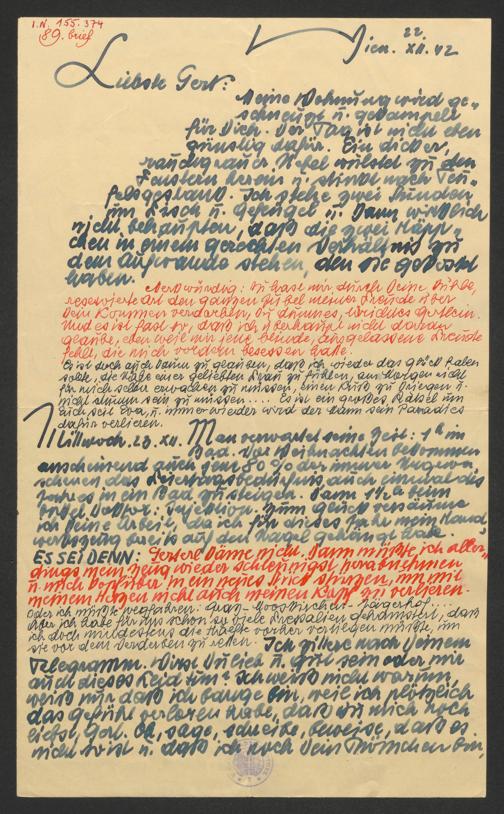 I.N. 155.374
89. Brief
Wien. 22. XII. 42
Liebste Gert:
Meine Wohnung wird ge-
scheuert u. gewampelt
für Dich. Der Tag ist nicht eben
günstig dafür. Ein dicker,
rauchgrauer Nebel wülstet zu den
Fenstern herein u. stinkt nach Teu-
felsgestank. Ich stehe zwei Stunden
um Fisch u. Geflügel u. kann wirklich
nicht behaupten, daß die zwei Häpp-
chen in einem gerechten Verhältnis zu
dem Aufwande stehen, den sie gekostet
haben.
Merkwürdig: Du hast mir durch Deine kühle,
reservierte Art den ganzen Jubel meiner Freude über
Dein Kommen verdorben, Du dummes, Gertlein.
Und es ist fast so, daß ich überhaupt nicht daran
glaube, oder weil mir jene blinde, ausgelassene Freude
fehlt, die mich vordem besessen hatte.
Es ist doch auch dann zu glauben, daß ich wieder das Glück haben
sollte, die Nähe einer geliebten Frau zu fühlen, am Morgen nicht
für mich allein erwachen zu müssen, einen Kuß zu kriegen u.
nicht stumm sein zu müssen.... Es ist ein großes Rätsel um
Euch seit Eva, u. immer wieder wird der Mann sein Paradies
dafür verlieren.
Mittwoch. 23. XII. Man verwartet seine Zeit: 1h im
Bad. Vor Weihnachten bekommen
anscheinend auch jene 80% der immer Ungewa-
schenen das Reinigungsbedürfnis auch einmal des
Jahres in ein Bad zu steigen. Dann 1½h beim
Doktor: Injektion. Zum Glück versäume
ich keine Arbeit, da ich für dieses Jahr mein Hand-
werkszeug bereits auf den Nagel gehängt habe.
ES SEI DENN: Gertere Dame nicht. Dann müßte ich aller-
dings mein Zeug wieder schleunigst herabnehmen
u. mich kopfüber in ein neues Stück stürzen, um mit
meinem Herzen nicht auch meinen Kopf zu verlieren.
Oder ich müßte wegfahren: Graz - Mooskirchen - Jägerhof....
Aber ich habe für uns schon so viele Fressalien gehamstert, daß
ich doch mindestens die Hälfte vorher vertilgen müßte, um
sie vor dem Verderben zu retten. Ich zittre nach Deinem
Telegramm. Wirst Du lieb u. gut sein oder mir
auch dieses Leid tun? Ich weiß nicht warum,
weiß nur daß ich bange bin, weil ich plötzlich
das Gefühl verloren habe, daß Du mich noch
liebst, Gert. Oh, sage, schreibe, beweise, daß es
nicht so ist u. daß ich noch Dein Männchen bin,